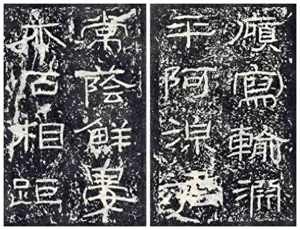 廎寫輸淵
平阿湶泥
常蔭鮮晏
木石相距